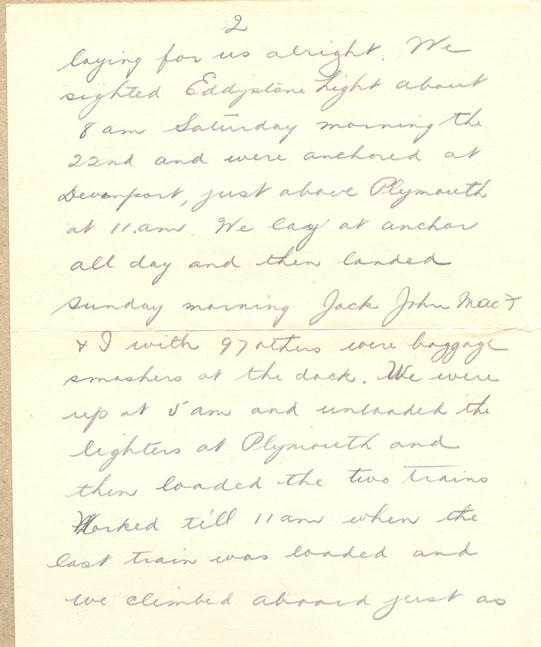 2
laying for us alright. We
sighted Eddystone Light about
8 am Saturday morning the
22nd and were anchored at
Devonport, just above Plymouth
at 11.am. We lay at anchor
all day and then landed
Sunday morning Jack John Mac &
& I with 97 others were baggage
smashers at the dock. We were
up at 5 am and unloaded the
lighters at Plymouth and
then loaded the two trains
Worked till 11 am when the
last train was loaded and
we climbed aboard just as